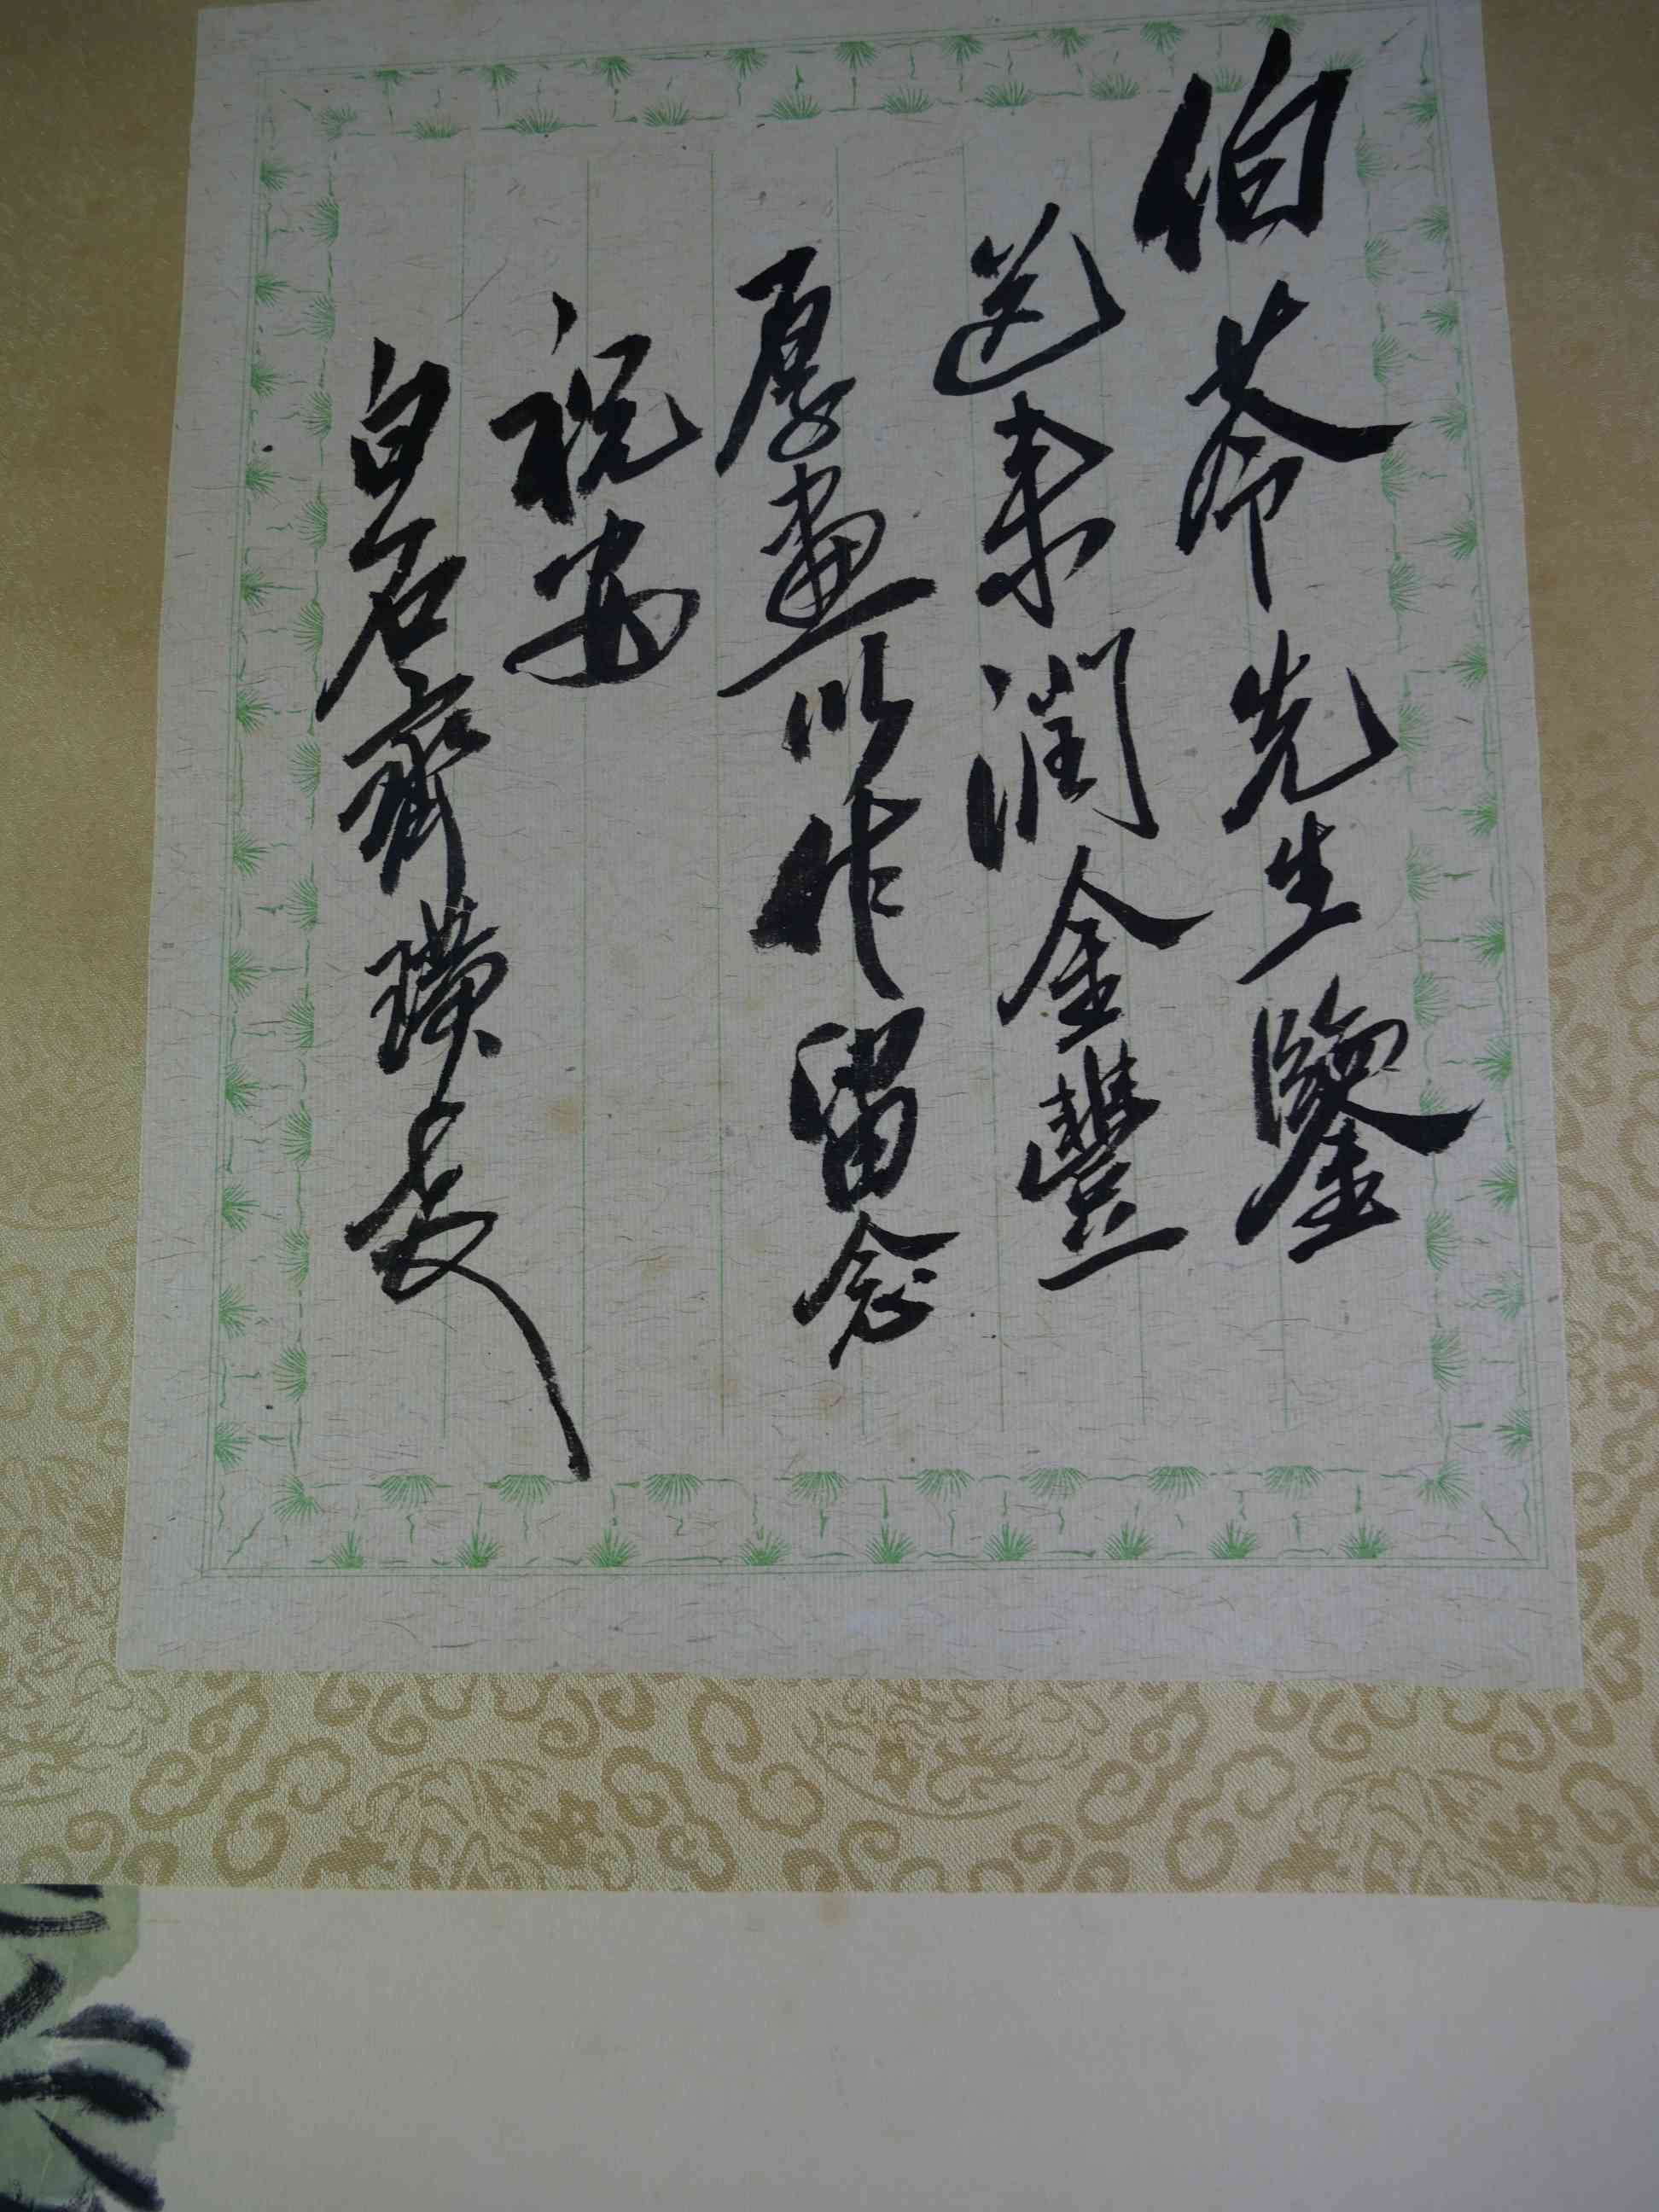 伯苓先生鑒
送来潤金豐
厚畫以作留念
祝安
白石齊璜